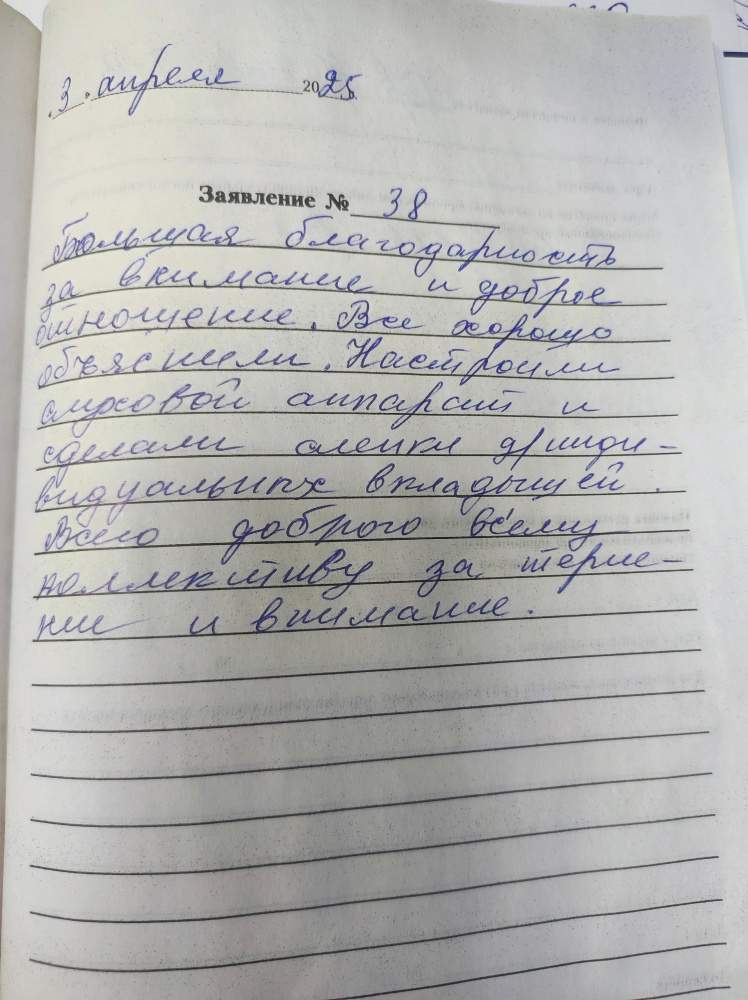 3 апреля 2025
Заявление № 38
Большая благодарность
за внимание и доброе
отношение. Все хорошо
объяснили. Настроили
слуховой аппарат и
сделали слепки д/инди-
видуальных вкладышей.
Всего доброго всему
коллективу за терпе-
ние и внимание.